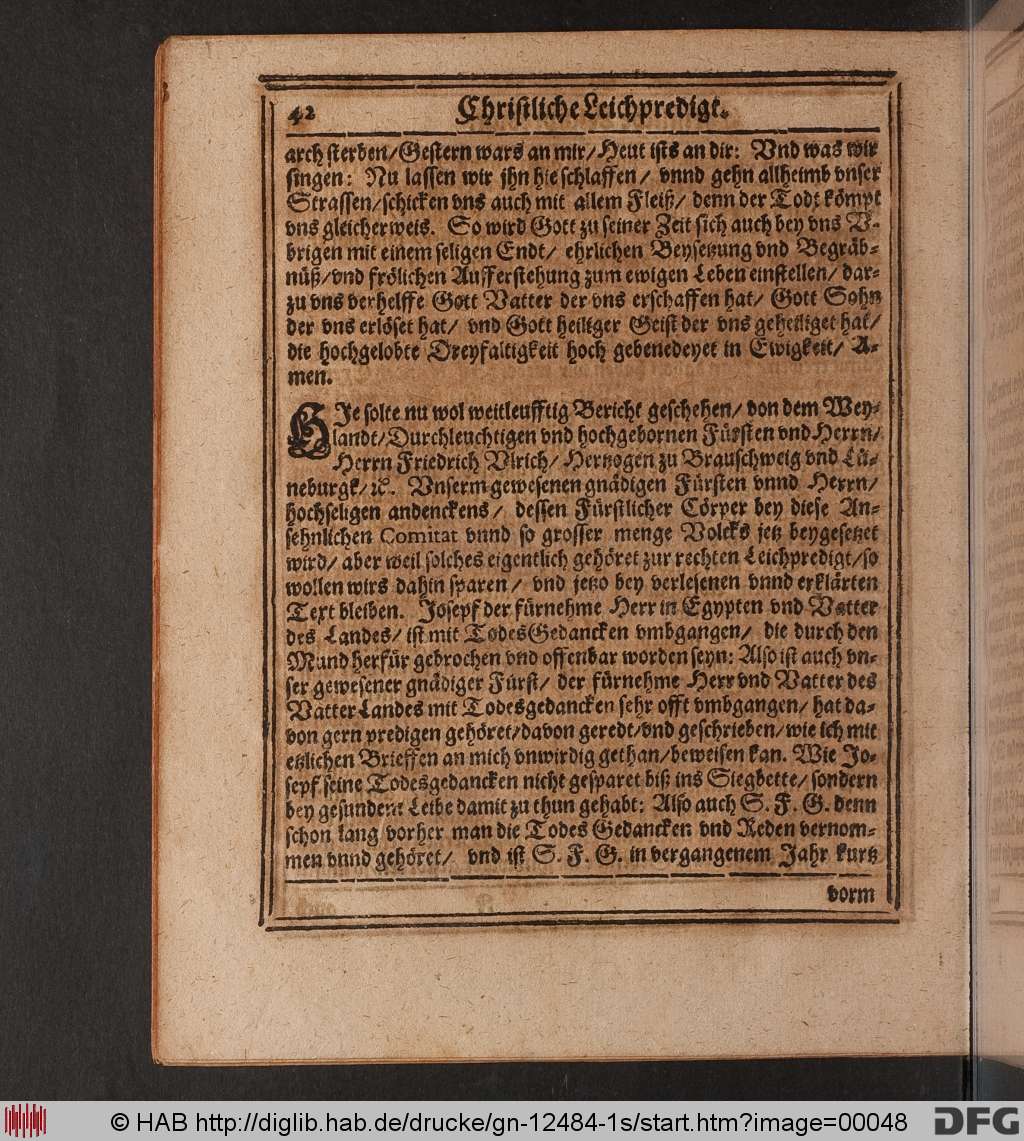 42 Christliche Leichpredigt.
arch sterben/Gestern wars an mir/Heut ists an dir: Vnd was wir
singen: Nu lassen wir jhn hie schlaffen/ vnnd gehn allheimb vnser
Strassen/schicken vns auch mit allem Fleiß/ denn der Todt kömpt
vns gleicher weis. So wird Gott zu seiner Zeit sich auch bey vns V-
brigen mit einem seligen Endt/ ehrlichen Beysetzung vnd Begräb-
nüß/vnd frölichen Aufferstehung zum ewigen Leben einstellen/ dar-
zu vns verhelffe Gott Vatter der vns erschaffen hat/ Gott Sohn
der vns erlöset hat/ vnd Gott heiliger Geist der vns geheiliget hat/
die hochgelobte Dreyfaltigkeit hoch gebenedeyet in Ewigkeit/ A-
men.
HJe solte nu wol weitleufftig Bericht geschehen/ von dem Wey-
landt/Durchleuchtigen vnd hochgebornen Fürsten vnd Herrn/
Herrn Friedrich Vlrich/ Hertzogen zu Brauschweig vnd Lü-
neburgk/ꝛc. Vnserm gewesenen gnädigen Fürsten vnnd Herrn/
hochseligen andenckens/ dessen Fürstlicher Cörper bey diese An-
sehnlichen Comitat vnnd so grosser menge Volcks jetz beygesetzet
wird/ aber weil solches eigentlich gehöret zur rechten Leichpredigt/so
wollen wirs dahin sparen/ vnd jetzo bey verlesenen vnnd erklärten
Text bleiben. Josepf der fürnehme Herr in Egypten vnd Vatter
des Landes/ ist mit TodesGedancken vmbgangen/ die durch den
Mund herfür gebrochen vnd offenbar worden seyn: Also ist auch vn-
ser gewesener gnädiger Fürst/ der fürnehme Herr vnd Vatter des
VatterLandes mit Todesgedancken sehr offt vmbgangen/ hat da-
von gern predigen gehöret/davon geredt/vnd geschrieben/wie ich mit
etzlichen Brieffen an mich vnwirdig gethan/beweisen kan. Wie Jo-
sepf seine Todesgedancken nicht gesparet biß ins Siegbette/sondern
bey gesundem Leibe damit zu thun gehabt: Also auch S. F. G. denn
schon lang vorher man die Todes Gedancken vnd Reden vernom-
men vnnd gehöret/ vnd ist S. F. G. in vergangenem Jahr kurtz
vorm
© HAB http://diglib.hab.de/drucke/gn-12484-1s/start.htm?image=00048 DFG